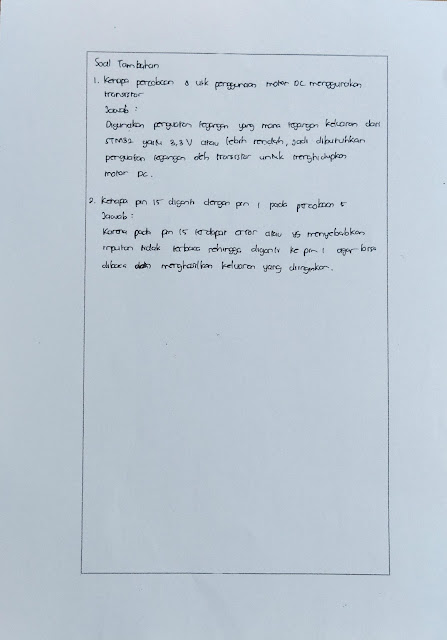 Soal Tambahan
1. Kenapa percobaan 8 utk penggunaan motor DC menggunakan
transistor
Jawab :
Digunakan penguatan tegangan yang mana tegangan keluaran dari
STM32 yaitu 3,3 V atau lebih rendah, jadi dibutuhkan
penguatan tegangan oleh transistor untuk menghidupkan
motor DC.
2. Kenapa pin 15 diganti dengan pin 1 pada percobaan 5
Jawab :
Karena pada pin 15 terdapat error atau yg menyebabkan
inputan tidak terbaca sehingga diganti ke pin 1 agar bisa
dibaca dan menghasilkan keluaran yang diinginkan.